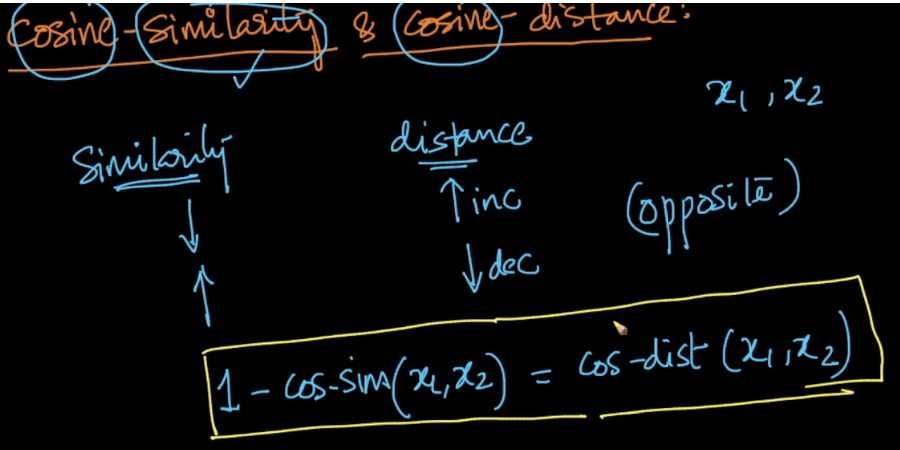 Cosine-Similarity & Cosine-distance:
x1, x2
Similarity distance
↓ ↑ inc (opposite)
↑ ↓ dec
1 - cos-sim(x1, x2) = cos-dist(x1, x2)